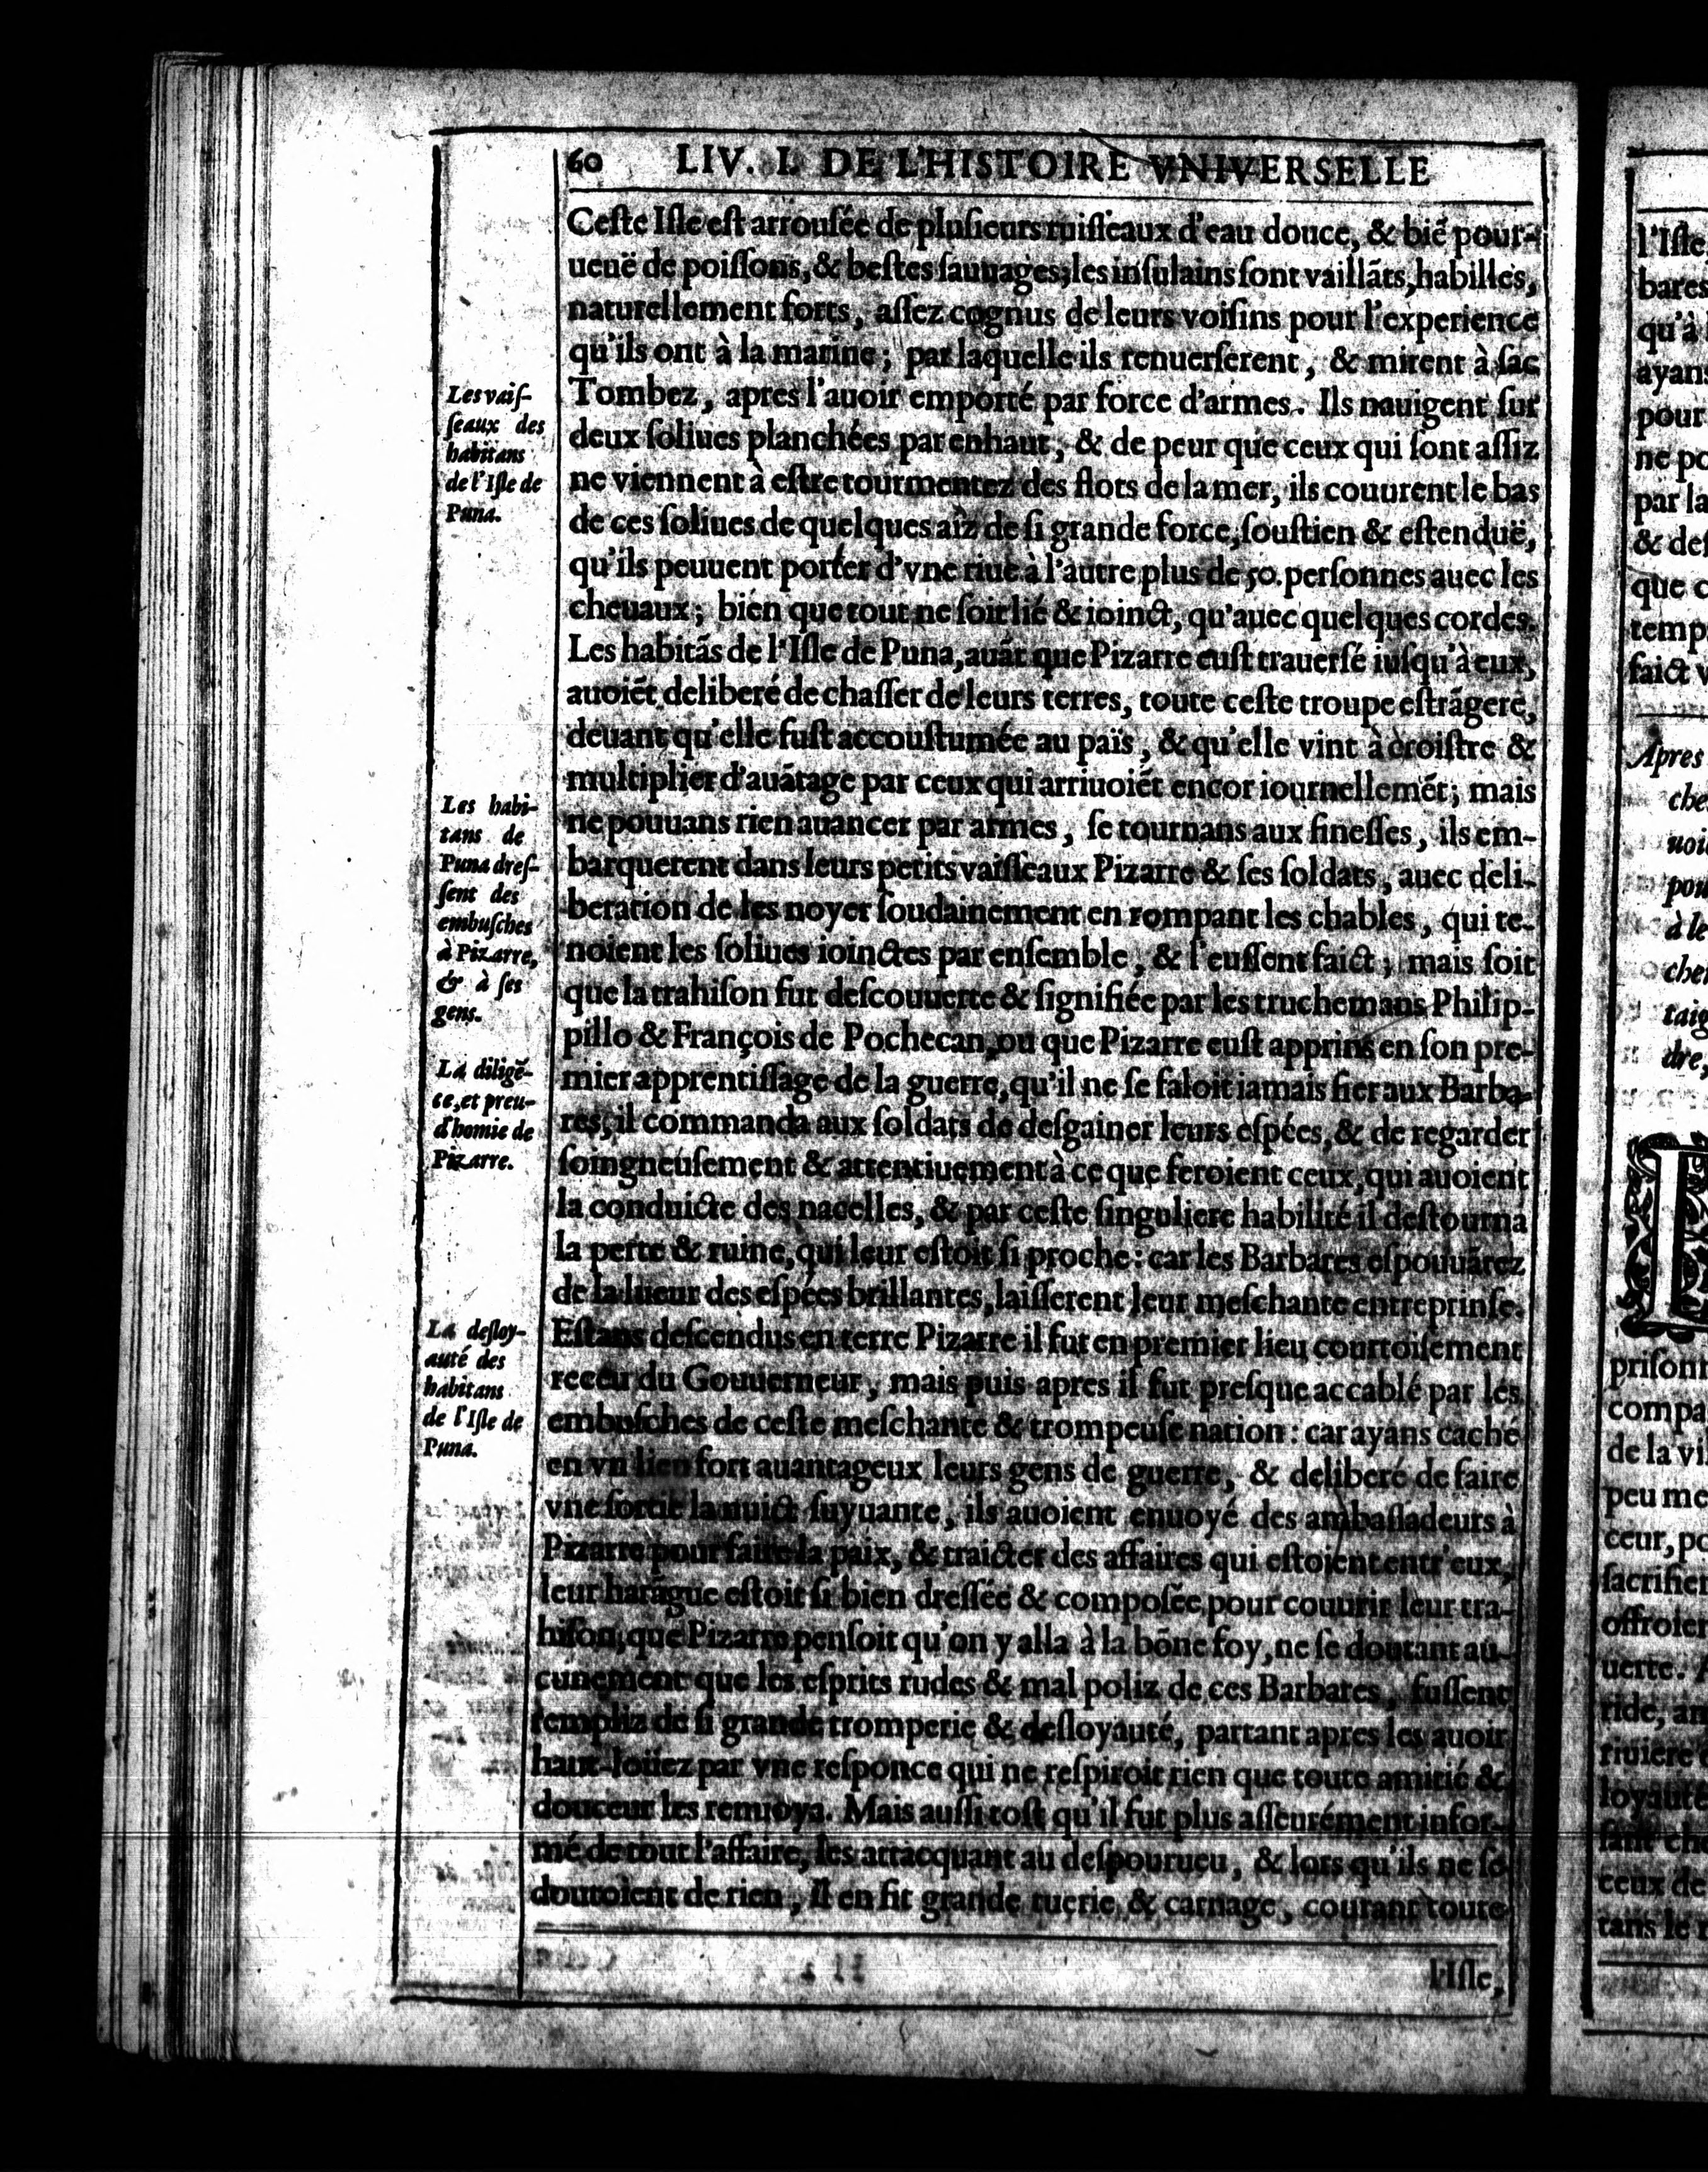 60 LIV. I. DE L'HISTOIRE VNIVERSELLE
Ceſte Iſle eſt arrouſée de pluſieurs ruiſſeaux d'eau douce, & biẽ pour-
ueuë de poiſſons, & beſtes ſauuages; les inſulains ſont vaillãts, habilles,
naturellement forts, aſſez cognus de leurs voiſins pour l'experience
qu'ils ont à la marine; par laquelle ils renuerſerent, & mirent à ſac
Tombez, apres l'auoir emporté par force d'armes. Ils nauigent ſur
deux ſoliues planchées par enhaut, & de peur que ceux qui ſont aſſiz
ne viennent à eſtre tourmentez des flots de la mer, ils couurent le bas
de ces ſoliues de quelques aîz de ſi grande force, ſouſtien & eſtenduë,
qu'ils peuuent porter d'vne riue à l'autre plus de 50. perſonnes auec les
cheuaux; bien que tout ne ſoit lié & ioinct, qu'auec quelques cordes.
Les habitãs de l'Iſle de Puna, auãt que Pizarre euſt trauerſé iuſqu'à eux,
auoiẽt deliberé de chaſſer de leurs terres, toute ceſte troupe eſtrãgere,
deuant qu'elle fuſt accouſtumée au païs, & qu'elle vint à croiſtre &
multiplier d'auãtage par ceux qui arriuoiẽt encor iournellemẽt; mais
ne pouuans rien auancer par armes, ſe tournans aux fineſſes, ils em-
barquerent dans leurs petits vaiſſeaux Pizarre & ſes ſoldats, auec deli-
beration de les noyer ſoudainement en rompant les chables, qui te-
noient les ſoliues ioinctes par enſemble, & l'euſſent faict; mais ſoit
que la trahiſon fut deſcouuerte & ſignifiée par les truchemans Philip-
pillo & François de Pochecan, ou que Pizarre euſt apprins en ſon pre-
mier apprentiſſage de la guerre, qu'il ne ſe faloit iamais fier aux Barba-
res, il commanda aux ſoldats de deſgainer leurs eſpées, & de regarder
ſoingneuſement & attentiuement à ce que feroient ceux, qui auoient
la conduicte des nacelles, & par ceſte ſinguliere habilité il deſtourna
la perte & ruine, qui leur eſtoit ſi proche: car les Barbares eſpouuãtez
de la lueur des eſpées brillantes, laiſſerent leur meſchante entreprinſe.
Eſtans deſcendus en terre Pizarre il fut en premier lieu courtoiſement
receu du Gouuerneur, mais puis apres il fut preſque accablé par les
embuſches de ceſte meſchante & trompeuſe nation: car ayans caché
en vn lieu fort auantageux leurs gens de guerre, & deliberé de faire
vne ſortie la nuict ſuyuante, ils auoient enuoyé des ambaſſadeurs à
Pizarre pour faire la paix, & traicter des affaires qui eſtoient entr'eux,
leur harãgue eſtoit ſi bien dreſſée & compoſée pour couurir leur tra-
hiſon, que Pizarre penſoit qu'on y alla à la bõne foy, ne ſe doutant au-
cunement que les eſprits rudes & mal poliz de ces Barbares, fuſſent
rempliz de ſi grande tromperie & deſloyauté, partant apres les auoir
haut-loüez par vne reſponce qui ne reſpiroit rien que toute amitié &
douceur les renuoya. Mais auſſi toſt qu'il fut plus aſſeurément infor-
mé de tout l'affaire, les attacquant au deſpourueu, & lors qu'ils ne ſe
doutoient de rien, Il en fit grande tuerie & carnage, courant toute
l'Iſle,
Les vaiſ-
ſeaux des
habitans
de l'Iſle de
Puna.
Les habi-
tans de
Puna dreſ-
ſent des
embuſches
à Pizarre,
& à ſes
gens.
La diligẽ-
ce, et preu-
d'homie de
Pizarre.
La deſloy-
auté des
habitans
de l'Iſle de
Puna.
l'Iſle
bares
qu'à
ayans
pour
ne po
par la
& deſ
que c
temp
faict v
Apres
che
uoi
pou
à le
che
taig
dre,
priſon
compa
de la vi
peu me
ceur, po
ſacrifier
offroier
uerte.
ride, ar
riuiere
loyauté
ceux de
tans le